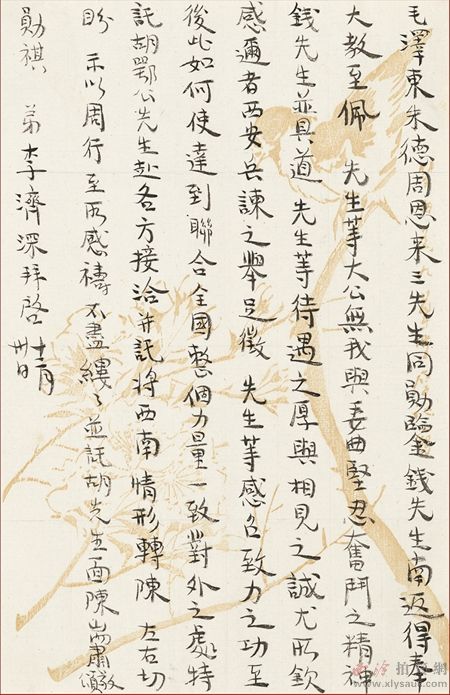 毛澤東朱德周恩来三先生同勛鑒錢先生南返得奉
大教至佩 先生等大公無我與委曲堅忍奮鬥之精神
錢先生並具道 先生等待遇之厚與相見之誠尤所欽
感邇者西安兵諫之舉足徵 先生等感召致力之功至
後此如何使達到聯合全國整個力量一致對外之處特
託胡鄂公先生赴各方接洽并託將西南情形轉陳 左右切
盼 示以周行至所感禱不盡縷々並託胡先生面陳耑肅儆頌
勛祺 弟李濟深拜啓 十二月卅日
西泠拍賣網
www.xlysauc.com